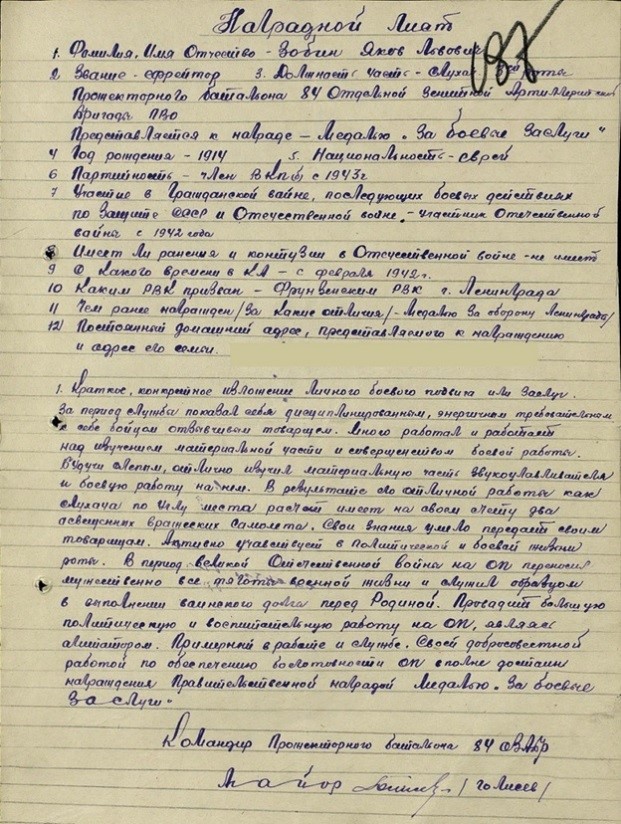 Наградной лист
187
1. Фамилия, Имя Отчество - Зобин Яков Львович
2 Звание - ефрейтор 3. Должность часть - слухач роты
Прожекторного батальона 84 Отдельной Зенитной Артиллерийской
Бригады ПВО
Представляется к награде - Медалью „За боевые Заслуги"
4 Год рождения - 1914 5. Национальность - еврей
6 Партийность - член ВКП(б) с 1943 г
7 Участие в Гражданской войне, последующих боевых действиях
по Защите СССР и Отечественной войне. - участник Отечественной
войны с 1942 года
8 Имеет ли ранения и контузии в Отечественной войне - не имеет
9 С Какого времени в КА - с февраля 1942 г.
10 Каким РВК призван - Фрунзенским РВК г. Ленинграда
11 Чем ранее награжден /За какие отличия/ - Медалью За оборону Ленинграда/
12) Постоянный домашний адрес, представляемого к награждению
и адрес его семьи.
1. Краткое, конкретное изложение личного боевого подвига или Заслуг.
За период службы показал себя дисциплинированным, энергичным требовательным
к себе бойцом отзывчивым товарищем. Много работал и работает
над изучением материальной части и совершенством боевой работы.
Будучи слепым, отлично изучил материальную часть звукоулавливателя
и боевую работу на нем. В результате его отличной работы как
слухача по углу места расчет имеет на своем счету два
освещенных вражеских самолета. Свои знания умело передает своим
товарищам. Активно участвует в политической и боевой жизни
роты. В период великой Отечественной войны на ОП переносил
мужественно все тяготы военной жизни и служил образцом
в выполнении воинского долга перед Родиной. Проводит большую
политическую и воспитательную работу на ОП, являясь
агитатором. Примерный в работе и службе. Своей добросовестной
работой по обеспечению боеготовности ОП вполне достоин
награждения Правительственной наградой Медалью „За боевые
Заслуги"
Командир Прожекторного батальона 84 ОЗАБр
Майор /Голисев/